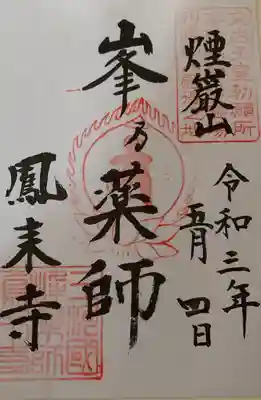 煙巌山
令和三年
五月四日
峯乃薬師
鳳来寺